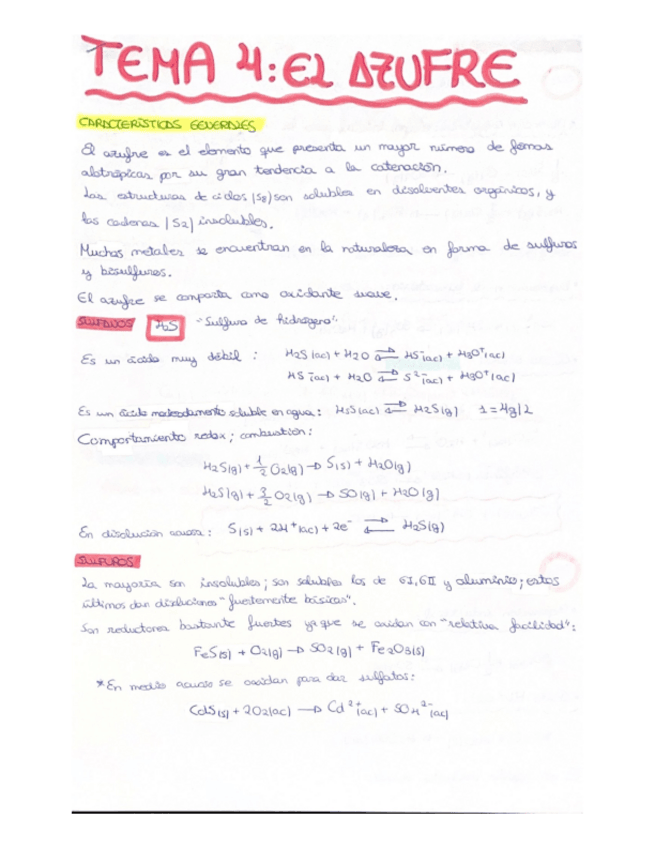 TEMA 4: El AZUFRE
CARACTERÍSTICAS GENERALES
El azufre es el elemento que presenta un mayor número de formas
alotrópicas por su gran tendencia a la catenación.
Las estructuras de ciclos (S8) son solubles en disolventes orgánicos, y
las cadenas (S2) insolubles.
Muchos metales se encuentran en la naturaleza en forma de sulfuros
y bisulfuros.
El azufre se comporta como oxidante suave.
SULFANOS H2S "Sulfuro de hidrógeno".
Es un ácido muy débil : H2S (ac) + H2O ⇌ HS⁻(ac) + H3O⁺(ac)
HS⁻(ac) + H2O ⇌ S²⁻(ac) + H3O⁺(ac)
Es un ácido moderadamente soluble en agua: H2S(ac) ⇌ H2S(g)
Comportamiento redox; combustión:
H2S(g) + 1/2 O2(g) → S(s) + H2O(g)
H2S(g) + 3/2 O2(g) → SO(g) + H2O(g)
En disolución acuosa: S(s) + 2H⁺(ac) + 2e⁻ ⇌ H2S(g)
SULFUROS
La mayoría son insolubles; son solubles los de GI, GII y aluminio; estos
últimos dan disoluciones "fuertemente básicas".
Son reductores bastante fuertes ya que se oxidan con "relativa facilidad":
FeS(s) + O2(g) → SO2(g) + Fe2O3(s)
*En medio acuoso se oxidan para dar sulfatos:
CdS(s) + 2O2(ac) → Cd²⁺(ac) + SO4²⁻(ac)